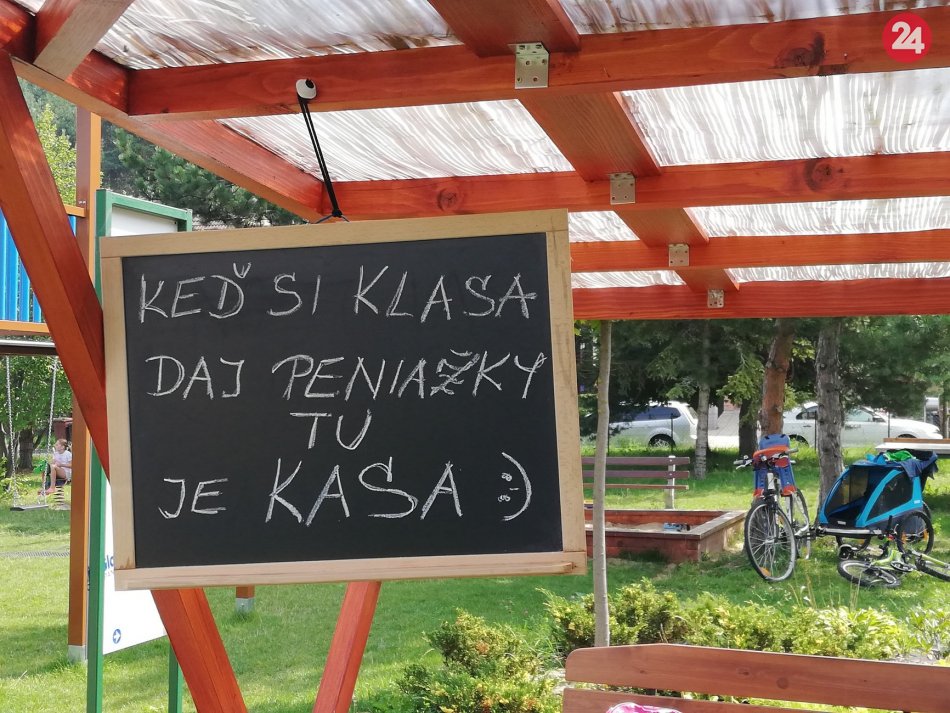 24
KEĎ SI KLASA
DAJ PENIAŽKY
TU
JE KASA :)